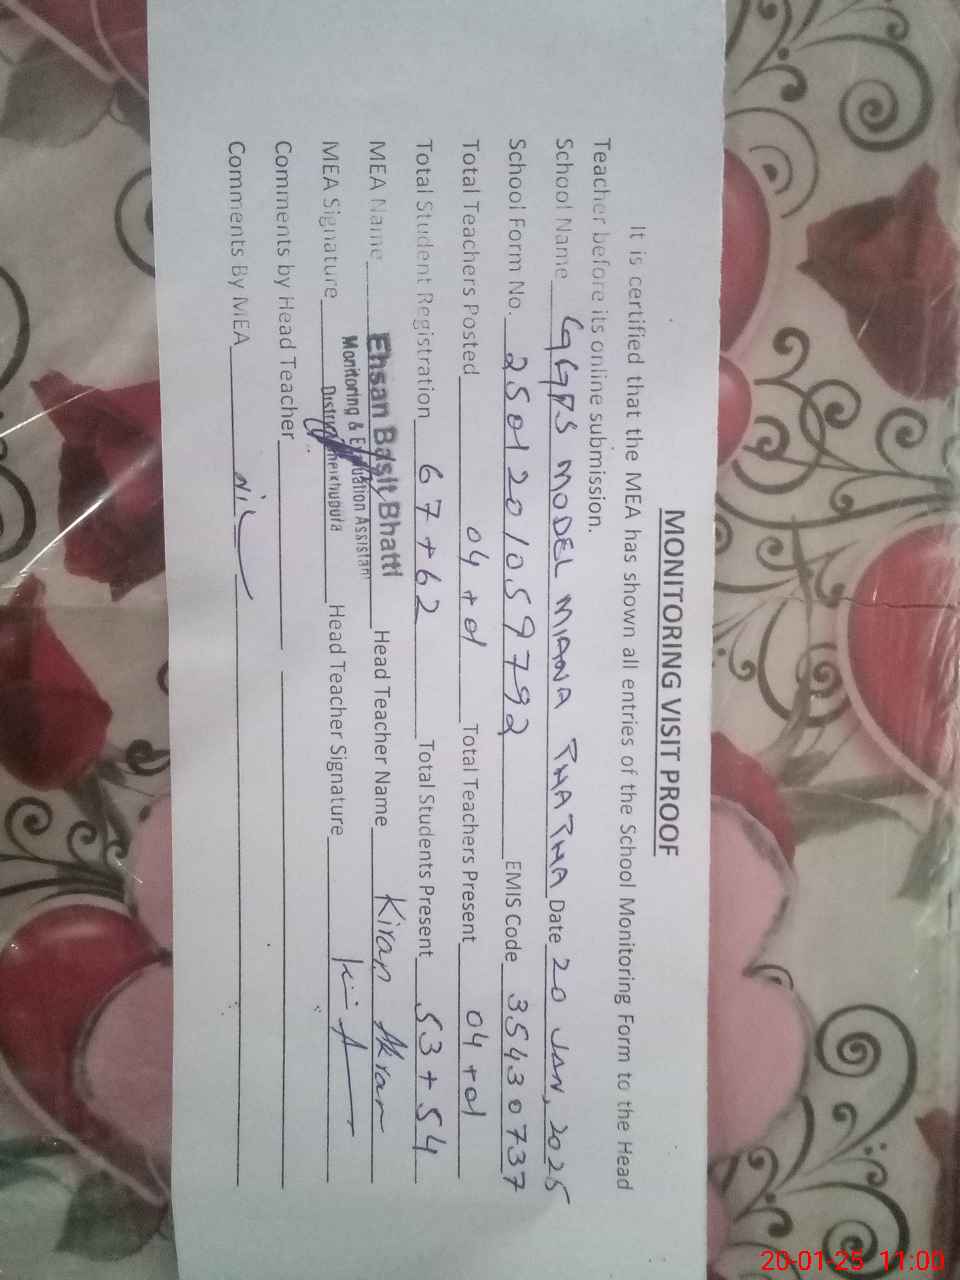 MONITORING VISIT PROOF
It is certified that the MEA has shown all entries of the School Monitoring Form to the Head
Teacher before its online submission.
School Name GGPS MODEL MIANA THATHA Date 20 JAN, 2025
School Form No. 2501201059792 EMIS Code 35430737
Total Teachers Posted 04+01 Total Teachers Present 04+01
Total Student Registration 67+62 Total Students Present 53+54
MEA Name Ehsan Basit Bhatti Head Teacher Name Kiran Akram
Monitoring & Evaluation Assistant
MEA Signature District Sheikhupura Head Teacher Signature
Comments by Head Teacher
Comments By MEA NIL
20-01-25 11:00